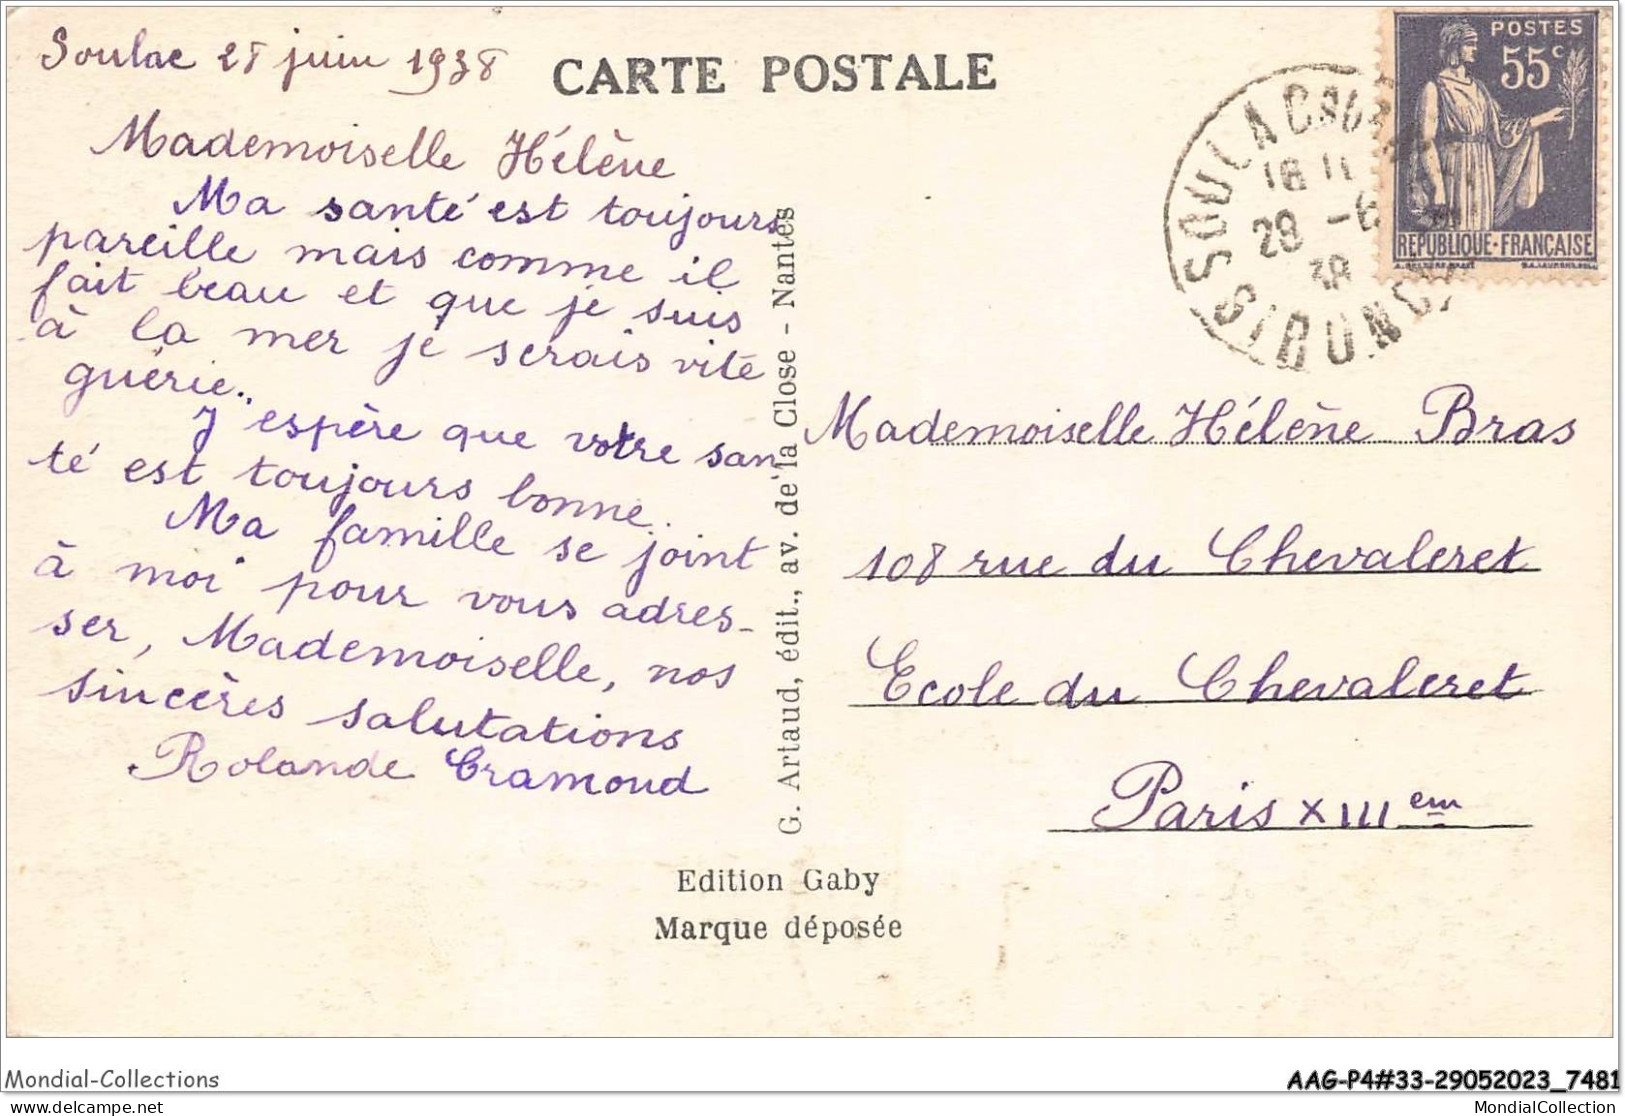 Soulac 28 juin 1938
CARTE POSTALE
POSTES
55c
REPUBLIQUE·FRANÇAISE
SOULAC
16 11
28 -6
38
GIRONDE
Mademoiselle Hélène
Ma santé est toujours
pareille mais comme il
fait beau et que je suis
à la mer je serais vite
guérie.
J espère que votre san
té est toujours bonne.
Ma famille se joint
à moi pour vous adres-
ser, Mademoiselle, nos
sincères salutations
Rolande Cramoud
G. Artaud, édit., av. de la Close - Nantes
Mademoiselle Hélène Bras
108 rue du Chevaleret
Ecole du Chevaleret
Paris XIIIem
Edition Gaby
Marque déposée
Mondial-Collections
AAG-P4#33-29052023_7481
delcampe.net
MondialCollection